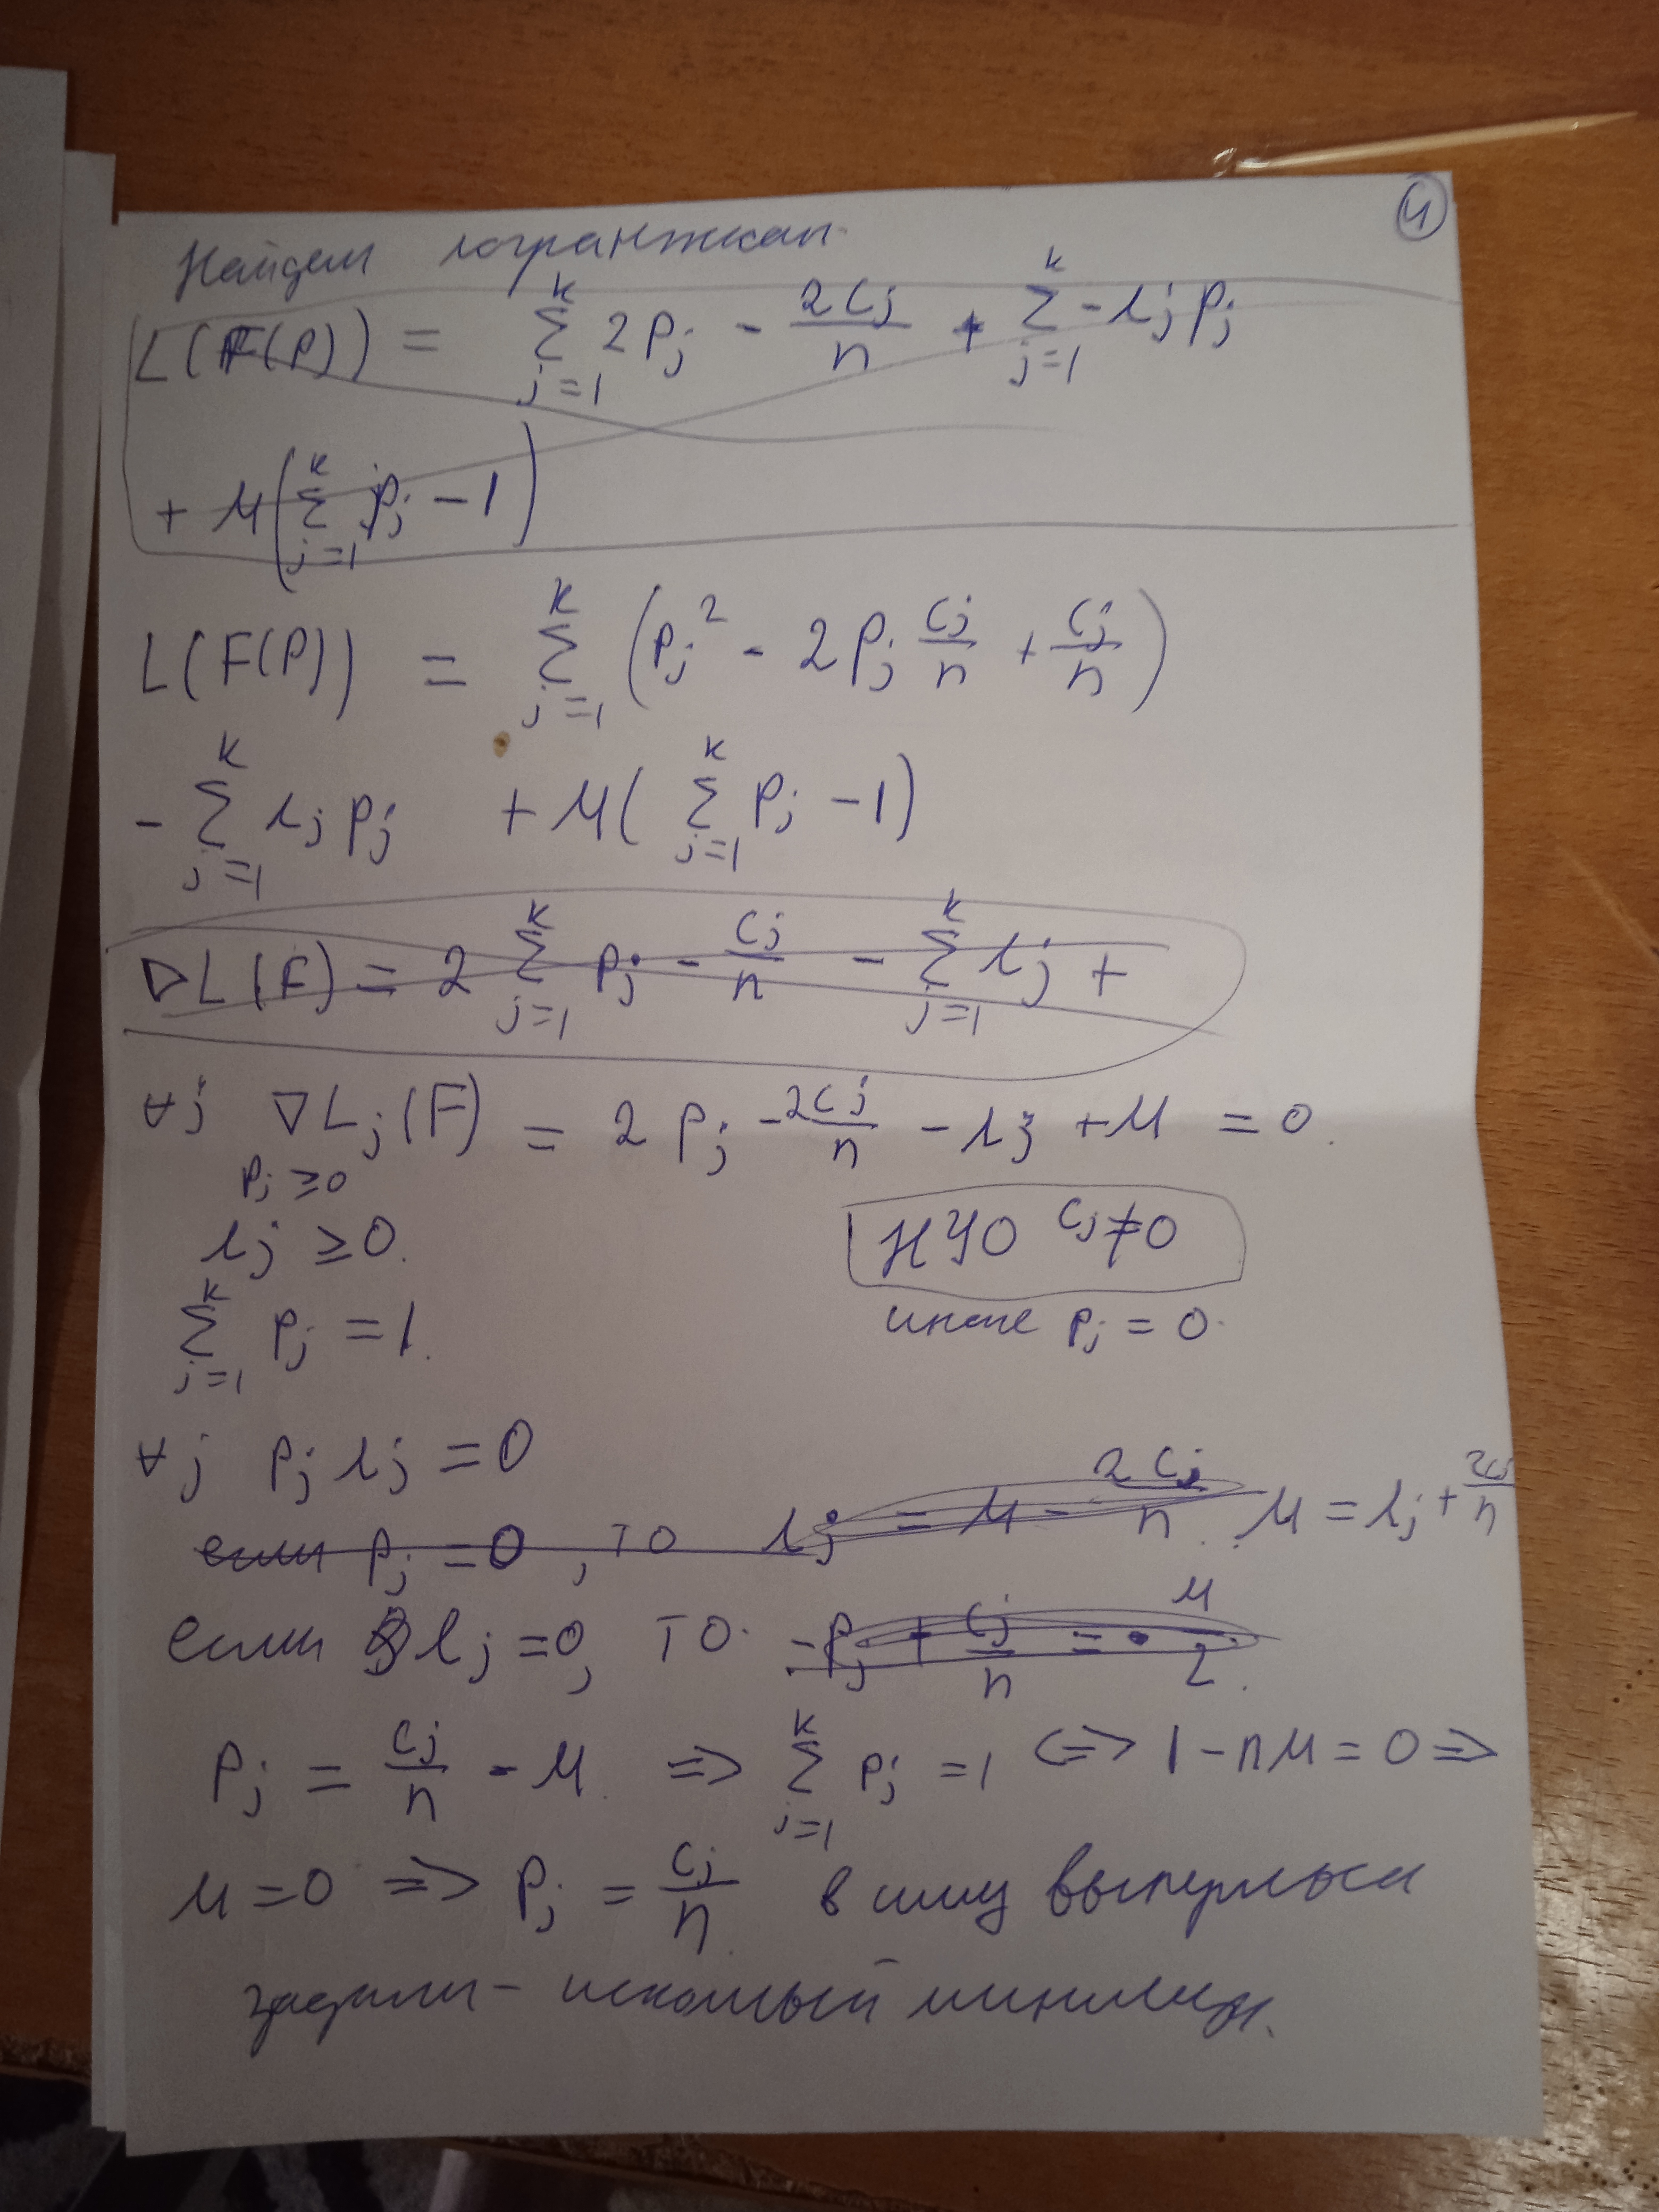 4
Найдем лагранжиан.
L(F(P)) = \sum_{j=1}^{k} 2p_j - \frac{2c_j}{n} + \sum_{j=1}^{k} -λ_j p_j
+ μ(\sum_{j=1}^{k} p_j - 1)
L(F(P)) = \sum_{j=1}^{k} (p_j^2 - 2p_j \frac{c_j}{n} + \frac{c_j}{n})
- \sum_{j=1}^{k} λ_j p_j + μ(\sum_{j=1}^{k} p_j - 1)
∇L(F) = 2 \sum_{j=1}^{k} p_j - \frac{c_j}{n} - \sum_{j=1}^{k} λ_j +
∀j ∇L_j(F) = 2p_j - \frac{2c_j}{n} - λ_j + μ = 0.
p_j ≥ 0
λ_j ≥ 0.
НУО c_j ≠ 0
\sum_{j=1}^{k} p_j = 1.
иначе p_j = 0.
∀j p_j λ_j = 0
если p_j = 0, то λ_j = μ - \frac{2c_j}{n}. μ = λ_j + \frac{2c_j}{n}
если λ_j = 0, то -p_j + \frac{c_j}{n} = \frac{μ}{2}.
p_j = \frac{c_j}{n} - μ ⇒ \sum_{j=1}^{k} p_j = 1 ⇔ 1 - nμ = 0 ⇒
μ = 0 ⇒ p_j = \frac{c_j}{n}. в силу выпуклости
задачи - искомый минимум.